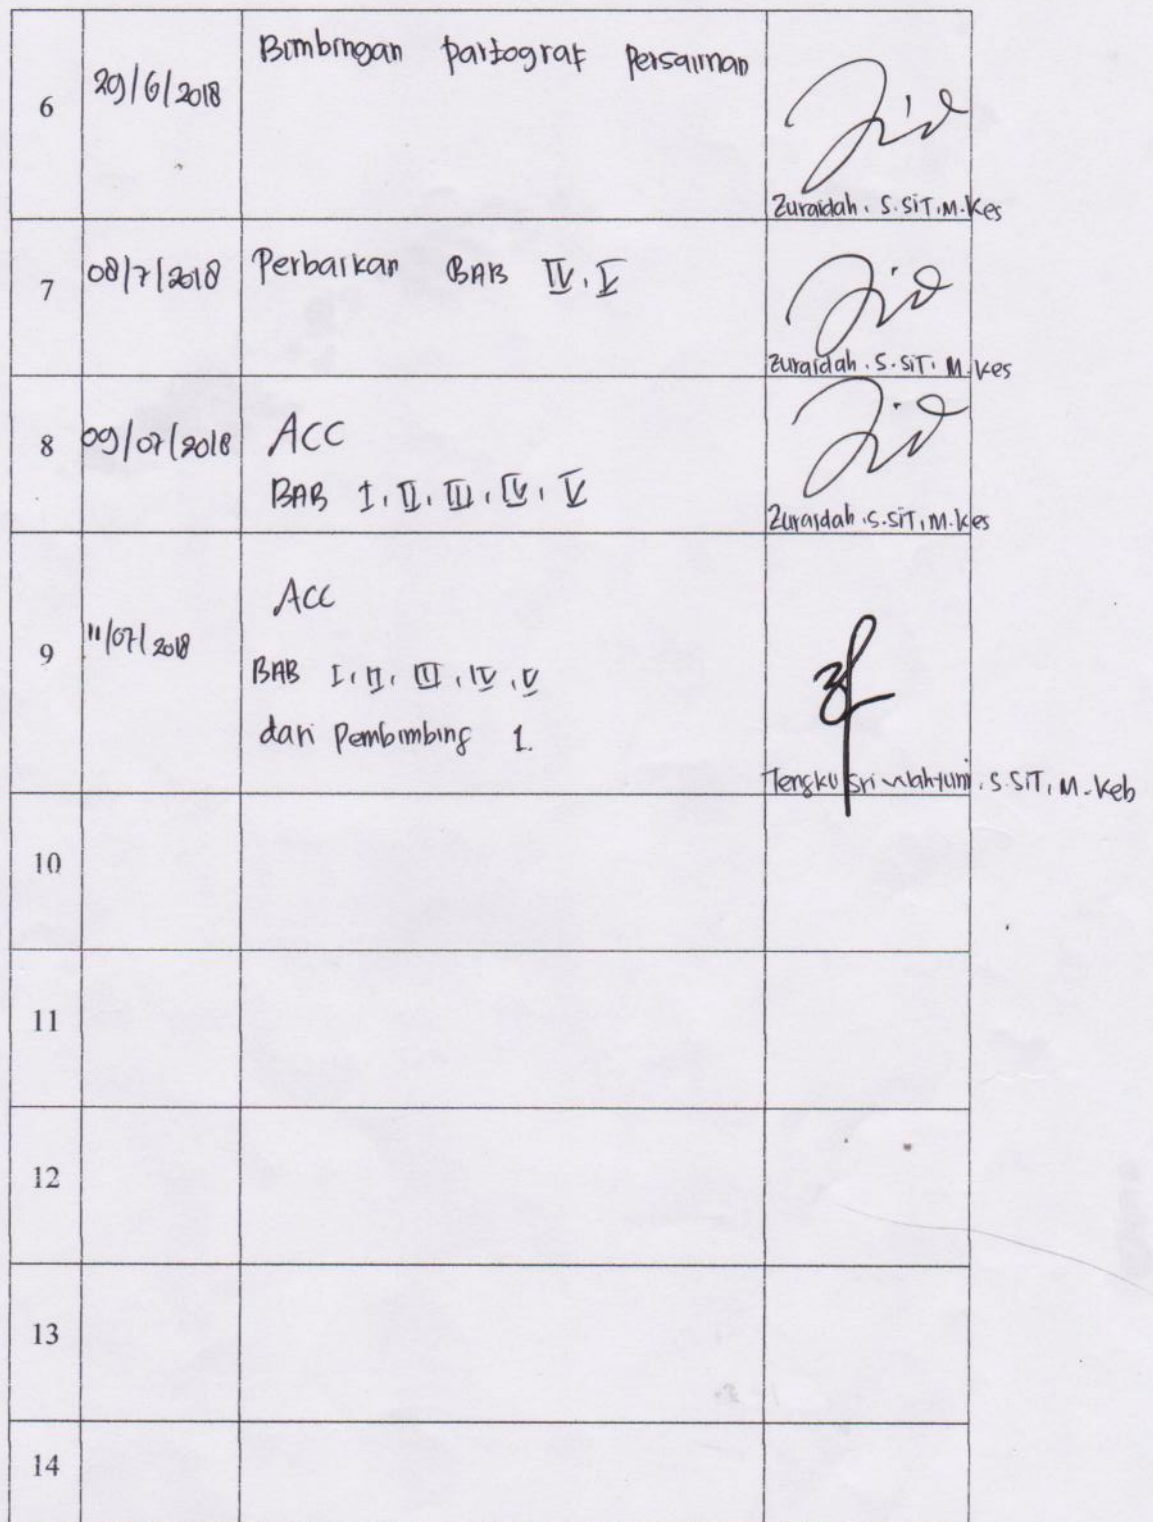 6
29/6/2018
Bimbingan partograf Persalinan
Zuraidah. S.SiT.M.Kes
7
08/7/2018
Perbaikan BAB IV, V
Zuraidah. S.SiT. M.Kes
8
09/07/2018
ACC
BAB I, II, III, IV, V
Zuraidah. S.SiT, M.Kes
9
11/07/2018
ACC
BAB I, II, III, IV, V
dari Pembimbing 1.
Tengku Sri Wahyuni. S.SiT, M.Keb
10
11
12
13
14